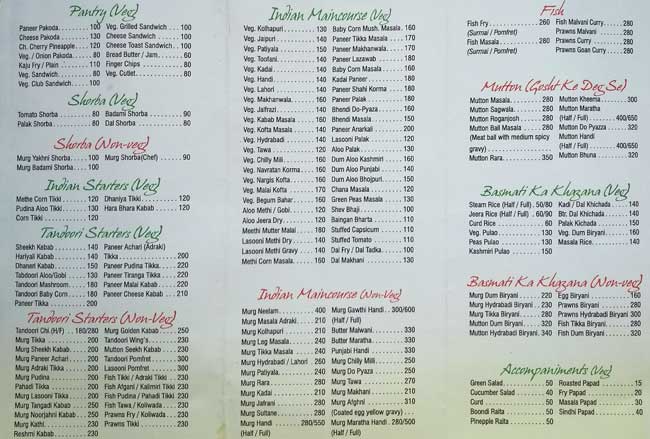 Pantry (Veg)
Paneer Pakoda 100
Cheese Pakoda 130
Ch. Cherry Pineapple 120
Veg. / Onion Pakoda 80
Kaju Fry / Plain 110
Veg. Sandwich 80
Veg. Club Sandwich 100
Veg. Grilled Sandwich 100
Cheese Sandwich 100
Cheese Toast Sandwich 100
Bread Butter / Jam 60
Finger Chips 80
Veg. Cutlet 80
Shorba (Veg)
Tomato Shorba 80
Palak Shorba 80
Badami Shorba 90
Dal Shorba 90
Shorba (Non-veg)
Murg Yakhni Shorba 100
Murg Badami Shorba 100
Murg Shorba(Chef) 90
Indian Starters (Veg)
Methe Corn Tikki 120
Pudina Aloo Tikki 130
Corn Tikki 120
Dhaniya Tikki 120
Hara Bhara Kabab 120
Tandoori Starters (Veg)
Sheekh Kabab 140
Hariyal Kabab 140
Dhaneri Kabab 150
Tabdoori Aloo/Gobi 130
Tandoori Mashroom 180
Tandoori Baby Corn 180
Paneer Tikka 200
Paneer Achari (Adraki)
Tikka 200
Paneer Pudina Tikka 220
Paneer Tiranga Tikka 220
Paneer Malai Kabab 220
Paneer Cheese Kabab 210
Tandoori Starters (Non-Veg)
Tandoori Chi (H/F) 180/280
Murg Tikka 200
Murg Sheekh Kabab 200
Murg Paneer Achari 220
Murg Pudina 200
Pahadi Tikka 200
Murg Lasooni Tikka 200
Murg Tangadi Kabab 250
Murg Noorjahni Kabab 250
Murg Kathi 230
Reshmi Kabab 230
Murg Golden Kabab 250
Tandoori Wing's 230
Mutton Seekh Kabab 230
Tandoori Pomfret 300
Lasooni Pomfret 300
Fish Tikki / Adraki Tikki 230
Fish Afgani / Kalimiri Tikki 230
Fish Pudina / Pahadi Tikki 230
Fish Tawa / Koliwada 230
Prawns Fry / Koliwada 230
Prawns Tikka 230
Indian Maincourse (Veg)
Veg. Kolhapuri 130
Veg. Jaipuri 140
Veg. Patiyala 150
Veg. Toofani 140
Veg. Kadai 140
Veg. Handi 140
Veg. Lahori 140
Veg. Makhanwala 140
Veg. Jafrazi 140
Veg. Kabab Masala 160
Veg. Kofta Masala 140
Veg. Hydrabadi 140
Veg. Tawa 120
Veg. Chilly Mili 150
Veg. Navratan Korma 160
Veg. Nargis Kofta 160
Veg. Malai Kofta 170
Veg. Begum Bahar 160
Aloo Methi / Gobi 120
Aloo Jeera Dry 120
Meethi Mutter Malai 180
Lasooni Methi Dry 140
Lasooni Methi Gravy 140
Methi Corn Masala 160
Baby Corn Mush. Masala 160
Paneer Tikka Masala 170
Paneer Makhanwala 170
Paneer Lazawab 180
Baby Corn Masala 160
Kadai Paneer 180
Paneer Shahi Korma 180
Paneer Palak 180
Bhendi Do-Pyaza 120
Bhendi Masala 150
Paneer Anarkali 200
Lasooni Palak 120
Aloo Palak 130
Dum Aloo Kashmiri 160
Dum Aloo Punjabi 140
Dum Aloo Bhojpuri 150
Chana Masala 120
Green Peas Masala 130
Shev Bhaji 120
Baingan Bharta 110
Stuffed Capsicum 160
Stuffed Tomato 160
Dal Fry / Dal Tadka 100
Dal Makhani 130
Indian Maincourse (Non-Veg)
Murg Neelam 400
Murg Masala Adraki 210
Murg Kolhapuri 210
Murg Leg Masala 240
Murg Tikka Masala 240
Murg Hydrabadi / Lahori 260
Murg Patiyala 260
Murg Rara 280
Murg Kadai 260
Murg Jafrani 280
Murg Sultane 280
Murg Handi 280/550
(Half / Full)
Murg Gawthi Handi 300/600
(Half / Full)
Butter Malwani 330
Butter Maratha 330
Punjabi Handi 330
Murg Chilly Milli 250
Murg Do Pyaza 250
Murg Masala 250
Murg Tawa 250
Murg Afghni 310
(Coated egg yellow gravy)
Murg Maratha Handi 280/550
(Half / Full)
Fish
Fish Fry 260
(Surmai / Pomfret)
Fish Masala 280
(Surmai / Pomfret)
Fish Malvani Curry 280
Prawns Malvani 280
Prawns Curry 280
Prawns Goan Curry 280
Mutton (Gosht Ke Deg Se)
Mutton Masala 280
Mutton Sagwala 280
Mutton Roganjosh 280
Mutton Ball Masala 280
(Meat ball with medium spicy
gravy)
Mutton Rara 350
Mutton Kheema 300
Mutton Maratha
(Half / Full) 400/650
Mutton Do Pyazza 320
Mutton Handi
(Half / Full) 400/650
Mutton Bhuna 320
Basmati Ka Khazana (Veg)
Steam Rice (Half / Full) 50/80
Jeera Rice (Half / Full) 60/90
Curd Rice 60
Veg. Pulao 130
Peas Pulao 130
Kashmiri Pulao 150
Kadi / Dal Khichada 140
Btr. Dal Khichada 140
Palak Kichada 150
Veg. Dum Biryani 160
Masala Rice 140
Basmati Ka Khazana (Non-veg)
Murg Dum Biryani 220
Murg Hydrabadi Biryani 230
Murg Tikka Biryani 230
Mutton Dum Biryani 320
Mutton Hydrabadi Biryani 340
Egg Biryani 160
Prawns Biryani 280
Prawns Hydrabadi Biryani 300
Fish Tikka Biryani 280
Fish Dum Biryani 320
Accompaniments (Veg)
Green Salad 50
Cucumber Salad 40
Curd 50
Boondi Raita 50
Pineapple Raita 50
Roasted Papad 15
Fry Papad 20
Masala Papad 30
Sindhi Papad 40